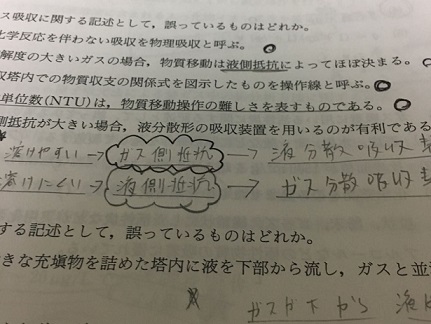 ス吸収に関する記述として，誤っているものはどれか。
化学反応を伴わない吸収を物理吸収と呼ぶ。
解度の大きいガスの場合，物質移動は液側抵抗によってほぼ決まる。
収塔内での物質収支の関係式を図示したものを操作線と呼ぶ。
単位数(NTU)は，物質移動操作の難しさを表すものである。
側抵抗が大きい場合，液分散形の吸収装置を用いるのが有利である
溶けやすい → ガス側抵抗 → 液分散吸収
溶けにくい → 液側抵抗 → ガス分散吸収
する記述として，誤っているものはどれか。
きな充塡物を詰めた塔内に液を下部から流し，ガスと並
ガスが下から